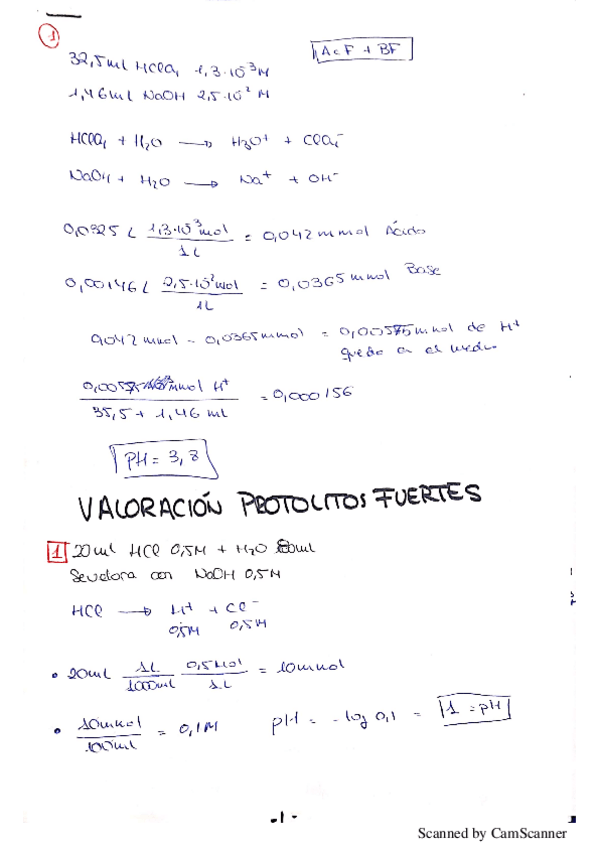 1
AcF + BF
32,5ml HClO₄ 1,3·10⁻³M
1,46ml NaOH 2,5·10⁻² M
HClO₄ + H₂O → H₃O⁺ + ClO₄⁻
NaOH + H₂O → Na⁺ + OH⁻
0,0325 L 1,3·10⁻³mol / 1L = 0,042 mmol Ácido
0,00146 L 2,5·10⁻²mol / 1L = 0,0365 mmol Base
0,042 mmol - 0,0365 mmol = 0,00575 mmol de H⁺
queda en el medio
0,00575 mmol H⁺ / 35,5 + 1,46 ml = 0,000156
pH = 3,8
VALORACIÓN PROTOLITOS FUERTES
1 20ml HCl 0,5M + H₂O 80ml
Se valora con NaOH 0,5M
HCl → H⁺ + Cl⁻
0,5M 0,5M
• 20ml 1L / 1000ml 0,5mol / 1L = 10mmol
• 10mmol / 100ml = 0,1M pH = -log 0,1 = 1 = pH
-1-
Scanned by CamScanner